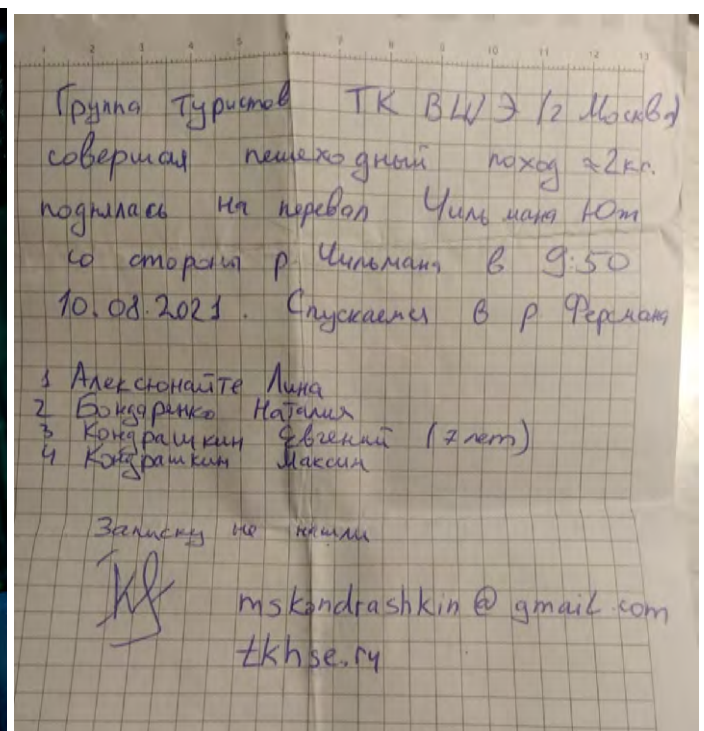 1 2 3 4 5 6 7 8 9 10 11 12 13
Группа туристов ТК ВШЭ (г Москва)
совершая пешеходный поход ≈2кс.
поднялась на перевал Чильмана Юж
со стороны р Чильмана в 9:50
10.08.2021. Спускаемся в р Ферсмана
1 Алексюнайте Лина
2 Бондаренко Наталия
3 Кондрашкин Евгений (7 лет)
4 Кондрашкин Максим
Записку не нашли
mskondrashkin@gmail.com
tkhse.ru